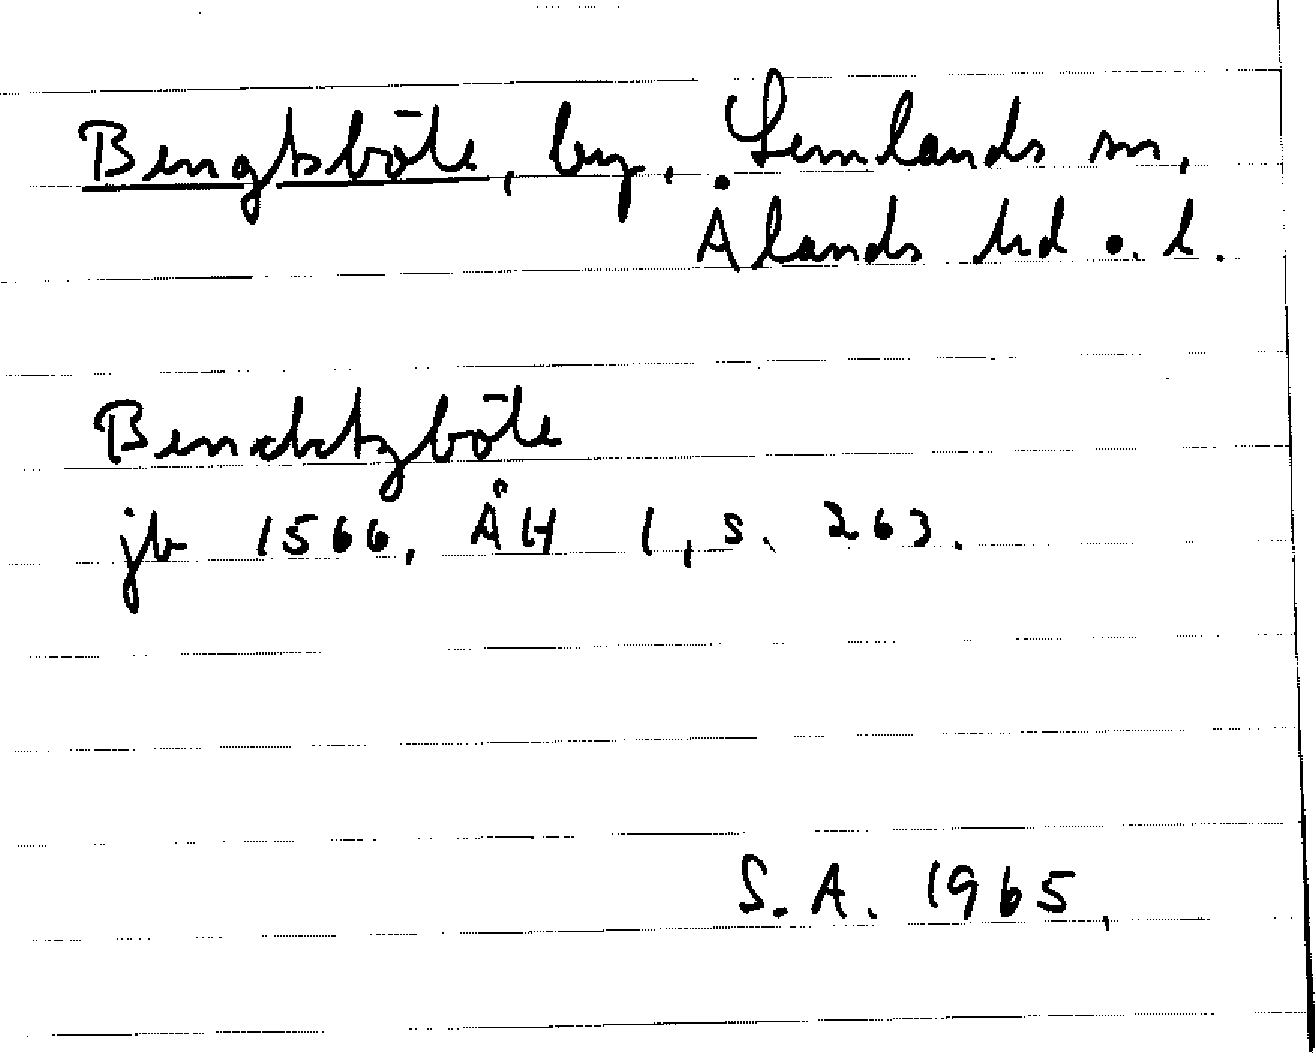 Bengtsböte, by, Lemlands sn,
Ålands hd o. l.
Bendctzböte
jb 1566, ÅH 1, s. 263.
S.A. 1965,